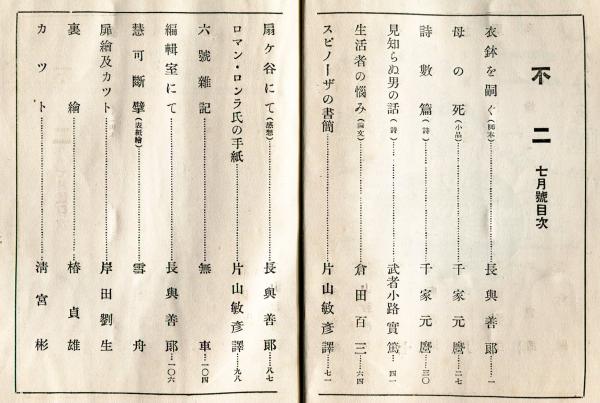 不二 七月號目次
衣鉢を嗣ぐ(脚本)…長與善郎…一
母の死(小品)…千家元麿…二七
詩數篇(詩)…千家元麿…三〇
見知らぬ男の話(詩)…武者小路實篤…四一
生活者の惱み(論文)…倉田百三…六四
スピノーザの書簡…片山敏彦譯…七一
扇ケ谷にて(感想)…長與善郎…八七
ロマン・ロンラ氏の手紙…片山敏彦譯…九八
六號雜記…無車…一〇四
編輯室にて…長與善郎…一〇六
慧可斷臂(表紙繪)…雪舟
扉繪及カツト…岸田劉生
裏繪…椿貞雄
カツト…淸宮彬